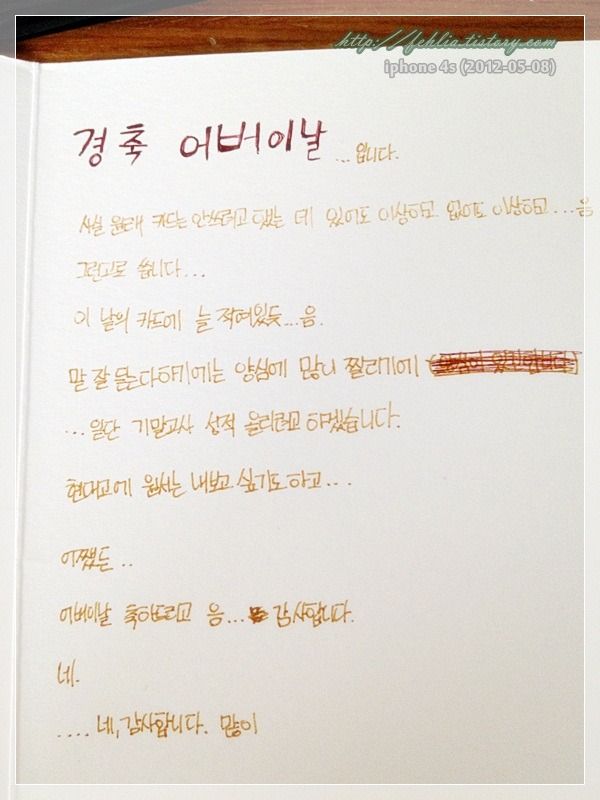 http://fehlia.tistory.com
iphone 4s (2012-05-08)
경축 어버이날 ...입니다.
사실 원래 카드는 안쓰려고 했는 데 있어도 이상하고 없어도 이상하고...음
그런고로 씁니다...
이 날의 카드에 늘 적혀있듯...음.
말 잘 듣는다하기에는 양심에 많이 찔리기에
...일단 기말고사 성적 올리려고 하겠습니다.
현대고에 원서는 내보고 싶기도하고...
어쨌든..
어버이날 축하드리고 음... 감사합니다.
네.
....네, 감사합니다. 많이